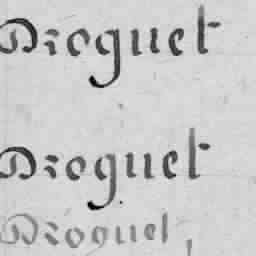 Droguet
Droguet
Droguet,